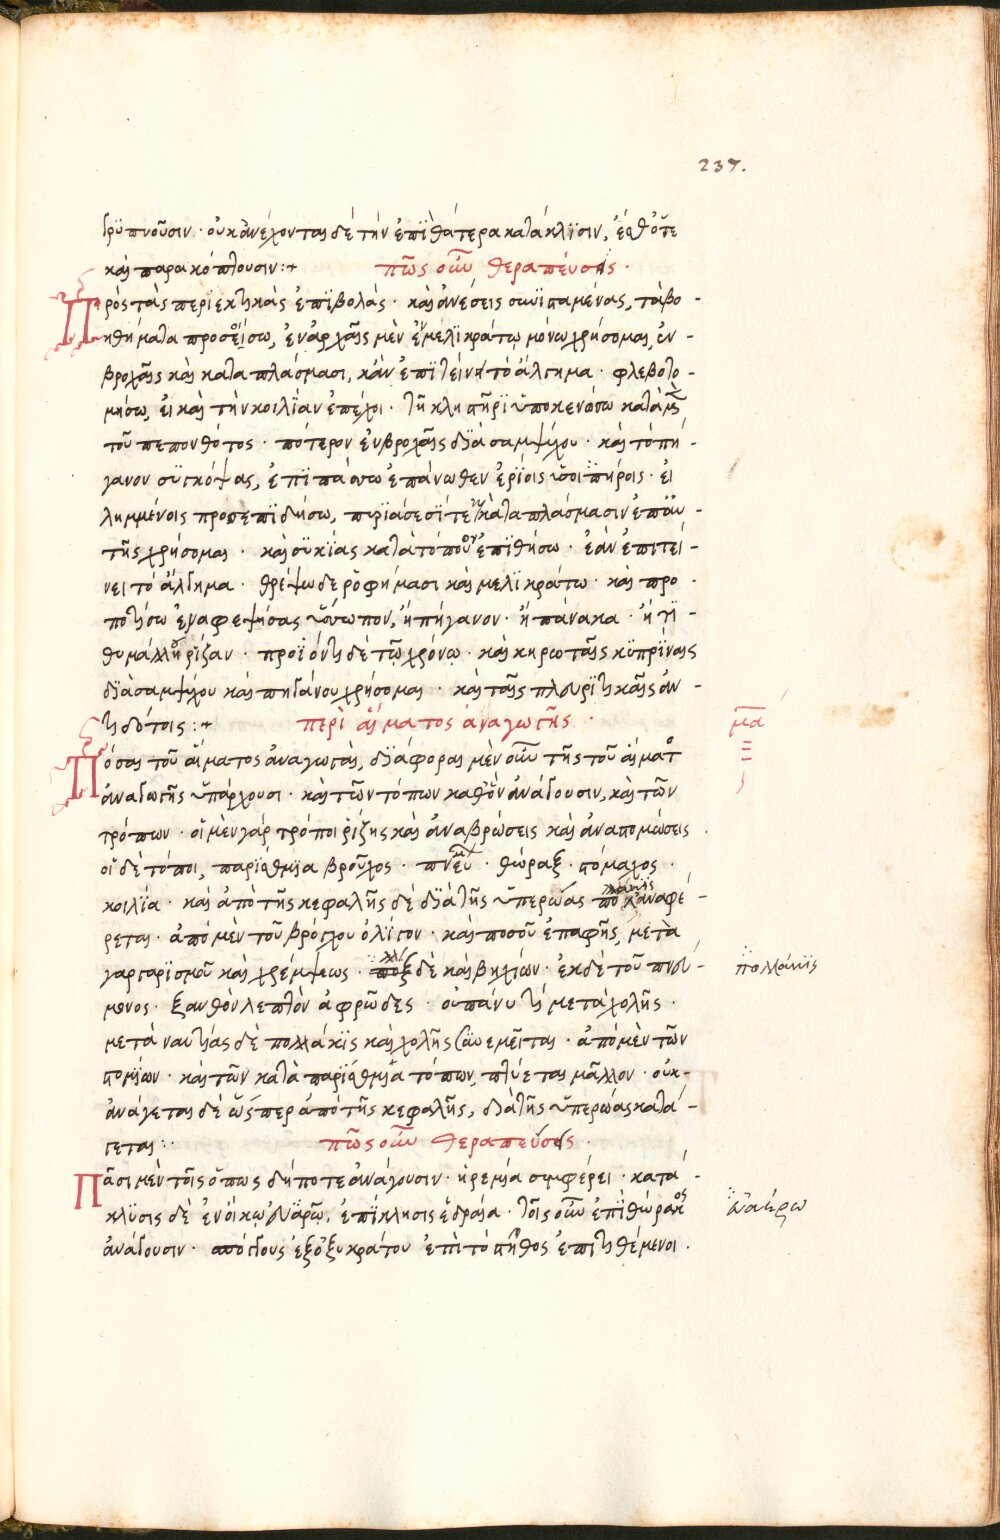 237.
γρϋπνοῦσιν · οὐκ ἀνέχονται δὲ τὴν ἐπϊθάτερα κατάκλϊσιν, ἔσθ' ὅτε
καὶ παρακόπτουσιν :+ πῶς οὖν θεραπεύσεις ·
Πρὸς τὰς περϊεκτικὰς ἐπϊβολὰς · καὶ ἀνέσεις συνϊσταμένας, τὰ βο-
ηθήματα προσοίσω, ἐν ἀρχαῖς μὲν ἐν μελϊκράτῳ μόνω χρήσομαι, ἐν-
βροχαῖς καὶ καταπλάσμασι, κἂν ἐπϊτείνῃ τὸ ἄλγημα · φλεβοτο-
μήσω, εἰ καὶ τὴν κοιλίαν ἐπέχοι · τῆ κληστῆρϊ ὑποκενώσω κατὰ
τοῦ πεπονθότος · πότερον ἐνβροχαῖς δϊὰ σαμψύχου · καὶ τὸ πή-
γανον συγκόψας, ἐπιπάσσω ἐπάνωθεν ἐρϊοις οισϋπηροις · εἰ
λημμένοις προσεπϊδήσω, πυρϊάσεσϊ τὲ καὶ καταπλάσμασιν ἐπάν-
της χρήσομαι · καὶ σϋκίας κατὰ τόπου ἐπϊθήσω · ἐὰν ἐπιτεί-
νει τὸ ἄλγημα · θρέψω δε ῥοφήμασι καὶ μελϊκράτω · καὶ προ-
ποτήσω ἐναφεψήσας ὕσσωπον, ἢ πήγανον · ἢ πάνακα · ἢ τϊ-
θυμάλλου ῥίζαν · προϊόντι δὲ τῶ χρόνῳ · καὶ κηρωταῖς κϋπρίναις
δϊὰ σαμψύχου καὶ πηγάνου χρήσομαι · καὶ ταῖς πλευρϊτικαῖς ἀν-
τιδότοις :+ περὶ αἵματος ἀναγωγῆς ·
μα
Ξ
Πόσαι τοῦ αἵματος ἀναγωγαὶ, δϊάφοραι μὲν οὖν τῆς τοῦ αἵματ
ἀναγωγῆς ὑπάρχουσι · καὶ τῶν τόπων καθ' ὃν ἀνάγουσιν, καὶ τῶν
τρόπων · οἱ μὲν γὰρ τρόποι ῥίξης καὶ ἀναβρώσεις καὶ ἀναστομώσεις ·
οἱ δὲ τόποι, παρίσθμϊα βροῦχος · πνευ · θώραξ · στόμαχος ·
κοιλϊα · καὶ ἀπὸ τῆς κεφαλῆς δὲ δϊὰ τῆς ὑπερώας πολλάκϊς ἀναφέ-
ρεται · ἀπὸ μὲν τοῦ βρόγχου ὀλίγον · καὶ ποσοῦ ἐπαφῆς, μετὰ
γαργαρϊσμοῦ καὶ χρέμψεως · δὲ καὶ βηχίων · ἐκ δὲ τοῦ πνεύ-
πολλάκϊς
μονος · ξανθὸν λεπτὸν ἀφρῶδες · οὐ πάνυ τί μετὰ χολῆς ·
μετὰ ναυτίας δὲ πολλάκϊς καὶ χολῆς συνεμεῖται · ἀπὸ μὲν τῶν
στομίων · καὶ τῶν κατὰ παρίσθμια τόπων, πτύεται μᾶλλον · οὐκ-
ἀνάγεται δὲ ὥσπερ ἀπὸ τῆς κεφαλῆς, διὰ τῆς ὑπερώας κατά-
γεται : · πῶς οὖν θεραπεύσεις ·
Πᾶσι μὲν τοῖς ὅπως δήποτε ἀνάγουσιν · ἠρεμία συμφέρει · κατά-
κλϋσις δὲ ἐν οἴκω εὐαέρῳ, ἐπϊκλησις ἑδραία · τοῖς οὖν ἐπϊ θώρακος
εὐαέρω
ἀνάγουσιν · σπόγγους ἐξ ὀξυκράτου ἐπὶ τὸ στῆθος ἐπιτιθέμενοι ·